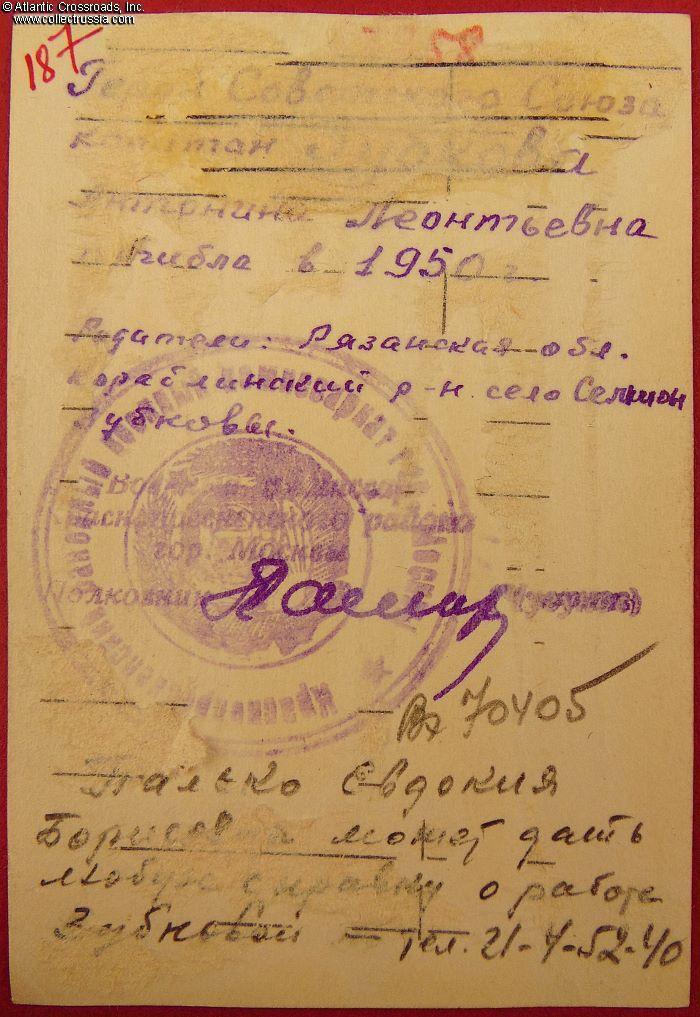 © Atlantic Crossroads, Inc.
www.collectrussia.com
187
58
Герой Советского Союза
капитан Зубкова
Антонина Леонтьевна
погибла в 1950 г.
Родители: Рязанская обл.
Кораблинский р-н. село Семион
Зубковы.
Краснопресненского района
гор. Москвы
Полковник
Вх 70405
Палько Евдокия
Борисовна может дать
любую справку о работе
Зубковой – тел.